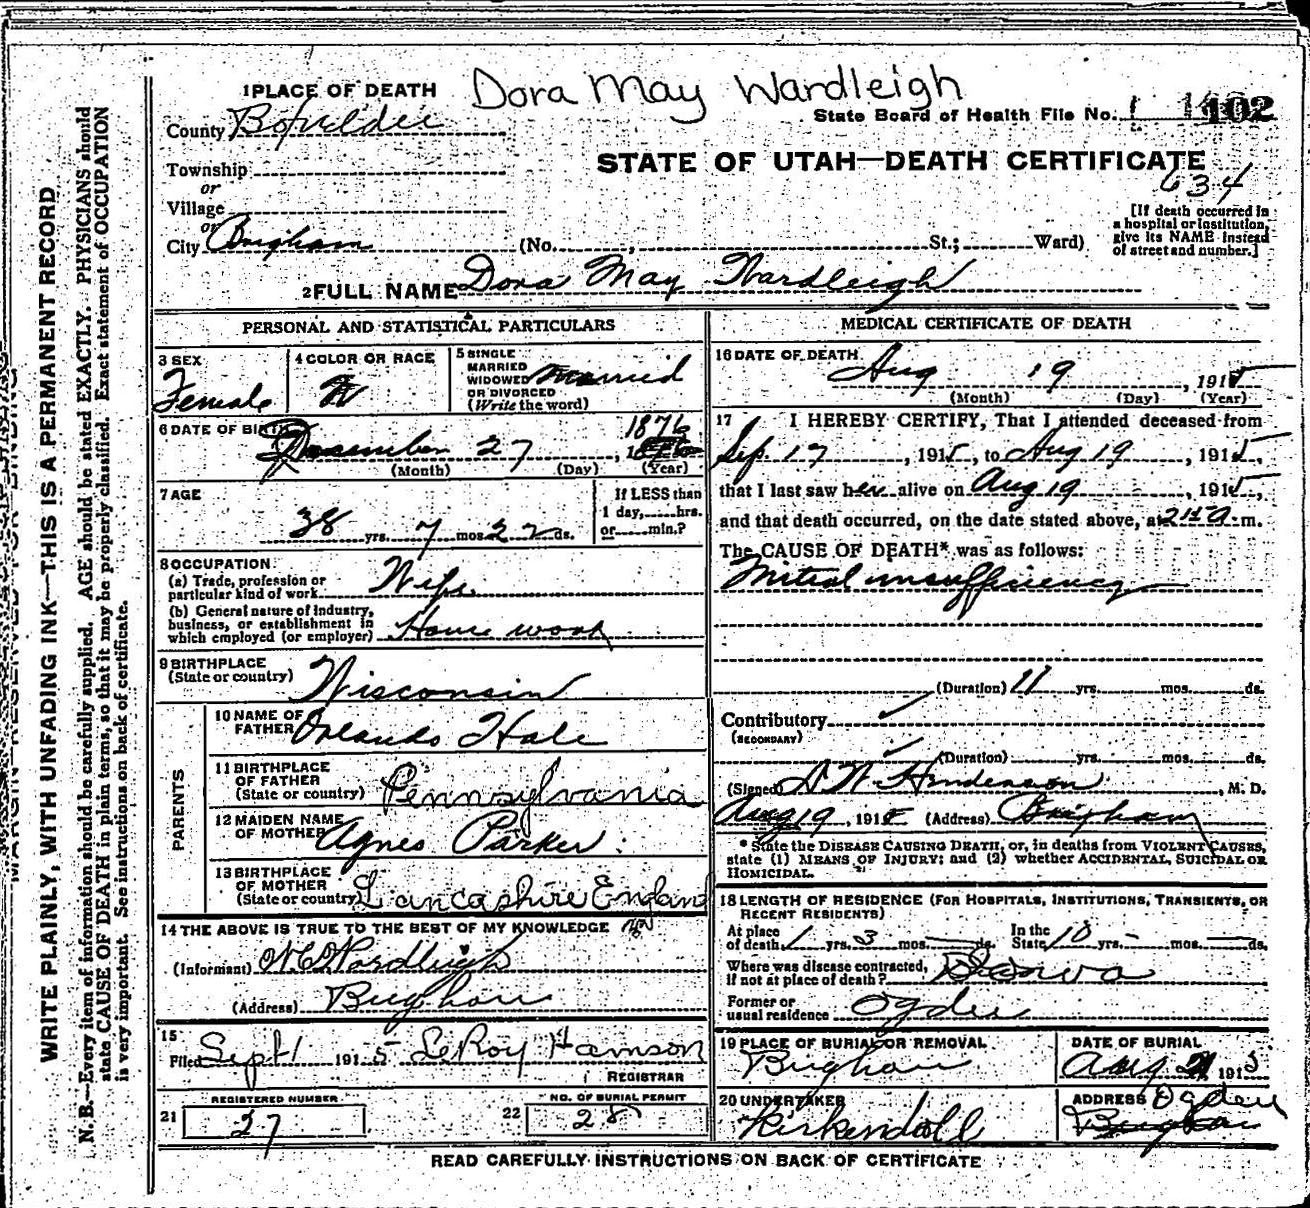 1 PLACE OF DEATH
Dora May Wardleigh
County
State Board of Health File No. 102
Township
or
Village
or
City Brigham (No. , St.; Ward)
STATE OF UTAH—DEATH CERTIFICATE
634
[If death occurred in
a hospital or institution,
give its NAME instead
of street and number.]
2 FULL NAME Dora May Wardleigh
PERSONAL AND STATISTICAL PARTICULARS
3 SEX
Female
4 COLOR OR RACE
W
5 SINGLE
MARRIED
WIDOWED
OR DIVORCED
(Write the word)
Married
6 DATE OF BIRTH
December 27, 1876
(Month) (Day) (Year)
7 AGE
38 yrs. 7 mos. 22 ds.
If LESS than
1 day, hrs.
or min.?
8 OCCUPATION
(a) Trade, profession or
particular kind of work Wife
(b) General nature of industry,
business, or establishment in
which employed (or employer) House work
9 BIRTHPLACE
(State or country) Wisconsin
PARENTS
10 NAME OF
FATHER Orlando Hale
11 BIRTHPLACE
OF FATHER
(State or country) Pennsylvania
12 MAIDEN NAME
OF MOTHER Agnes Parker
13 BIRTHPLACE
OF MOTHER
(State or country) Lancashire England
14 THE ABOVE IS TRUE TO THE BEST OF MY KNOWLEDGE
(Informant) Wardleigh
(Address) Brigham
15
Filed Sept 1 1915 LeRoy Hamson
REGISTRAR
REGISTERED NUMBER
21 27
NO. OF BURIAL PERMIT
22 28
MEDICAL CERTIFICATE OF DEATH
16 DATE OF DEATH
Aug 19, 1915
(Month) (Day) (Year)
17 I HEREBY CERTIFY, That I attended deceased from
Sep. 17, 1915, to Aug 19, 1915,
that I last saw her alive on Aug 19, 1915,
and that death occurred, on the date stated above, at m.
The CAUSE OF DEATH* was as follows:
Mitral insufficiency
(Duration) 11 yrs. mos. ds.
Contributory
(SECONDARY)
(Duration) yrs. mos. ds.
(Signed) Henderson, M. D.
Aug 19, 1915 (Address) Brigham
* State the DISEASE CAUSING DEATH, or, in deaths from VIOLENT CAUSES,
state (1) MEANS OF INJURY; and (2) whether ACCIDENTAL, SUICIDAL OR
HOMICIDAL.
18 LENGTH OF RESIDENCE (FOR HOSPITALS, INSTITUTIONS, TRANSIENTS, OR
RECENT RESIDENTS)
At place
of death 1 yrs. 3 mos. — ds.
In the
State 18 yrs. - mos. — ds.
Where was disease contracted,
if not at place of death?
Former or
usual residence Ogden
19 PLACE OF BURIAL OR REMOVAL
Brigham
DATE OF BURIAL
Aug 21 1915
20 UNDERTAKER
Kirkendall
ADDRESS Ogden
Brigham
READ CAREFULLY INSTRUCTIONS ON BACK OF CERTIFICATE
WRITE PLAINLY, WITH UNFADING INK—THIS IS A PERMANENT RECORD
N. B.—Every item of information should be carefully supplied. AGE should be stated EXACTLY. PHYSICIANS should
state CAUSE OF DEATH in plain terms, so that it may be properly classified. Exact statement of OCCUPATION
is very important. See instructions on back of certificate.